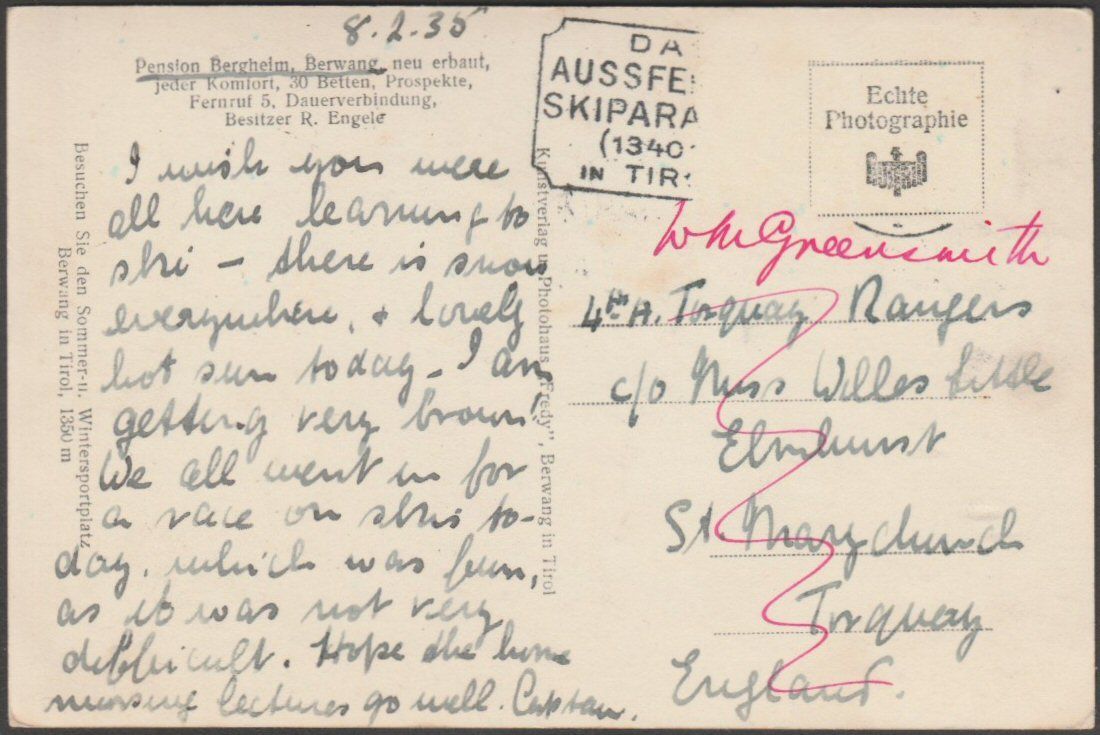 8.2.35
Pension Bergheim, Berwang, neu erbaut,
jeder Komfort, 30 Betten, Prospekte,
Fernruf 5, Dauerverbindung,
Besitzer R. Engele
DA
AUSSFE
SKIPARA
(1340
IN TIR
Echte
Photographie
I wish you were
all here learning to
ski – there is snow
everywhere, & lovely
hot sun today – I am
getting very brown!
We all went in for
a race on skis to-
day, which was fun,
as it was not very
difficult. Hope the home
nursing lectures go well. Captain.
Besuchen Sie den Sommer-u. Wintersportplatz
Berwang in Tirol, 1350 m
Kunstverlag u. Photohaus „Fredy", Berwang in Tirol
WM Greensmith
4th A. Torquay Rangers
c/o Miss Willes Little
Elmhurst
St. Marychurch
Torquay
England.